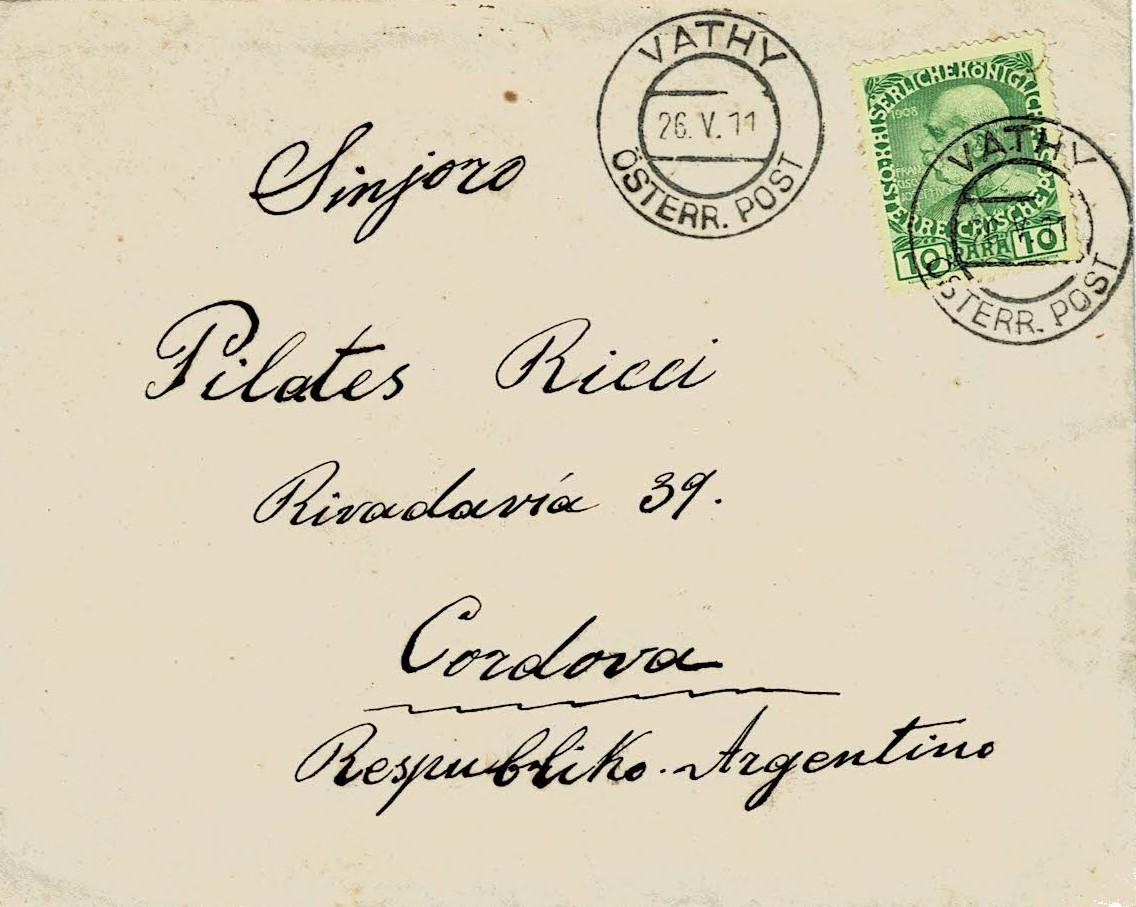 VATHY
26. V. 11
ÖSTERR. POST
KAISERLICHE KÖNIGLICHE
1908
ÖSTERREICHISCHE POST
10 PARA 10
VATHY
ÖSTERR. POST
Sinjoro
Pilates Ricci
Rivadavía 39.
Cordova
Respubliko. Argentino